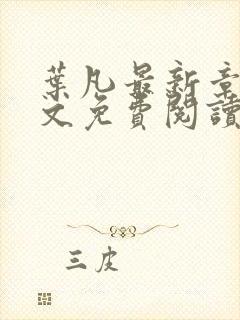 葉凡最新章
文免費閱讀
三皮